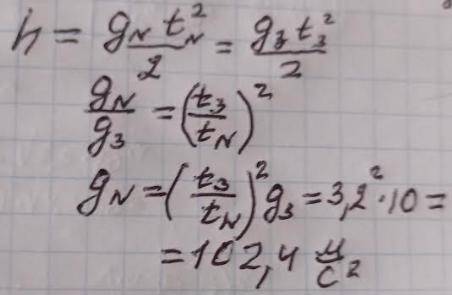 h = g_N t_N^2 / 2 = g_з t_з^2 / 2
g_N / g_з = (t_з / t_N)^2
g_N = (t_з / t_N)^2 g_з = 3,2^2 · 10 =
= 102,4 м/с^2